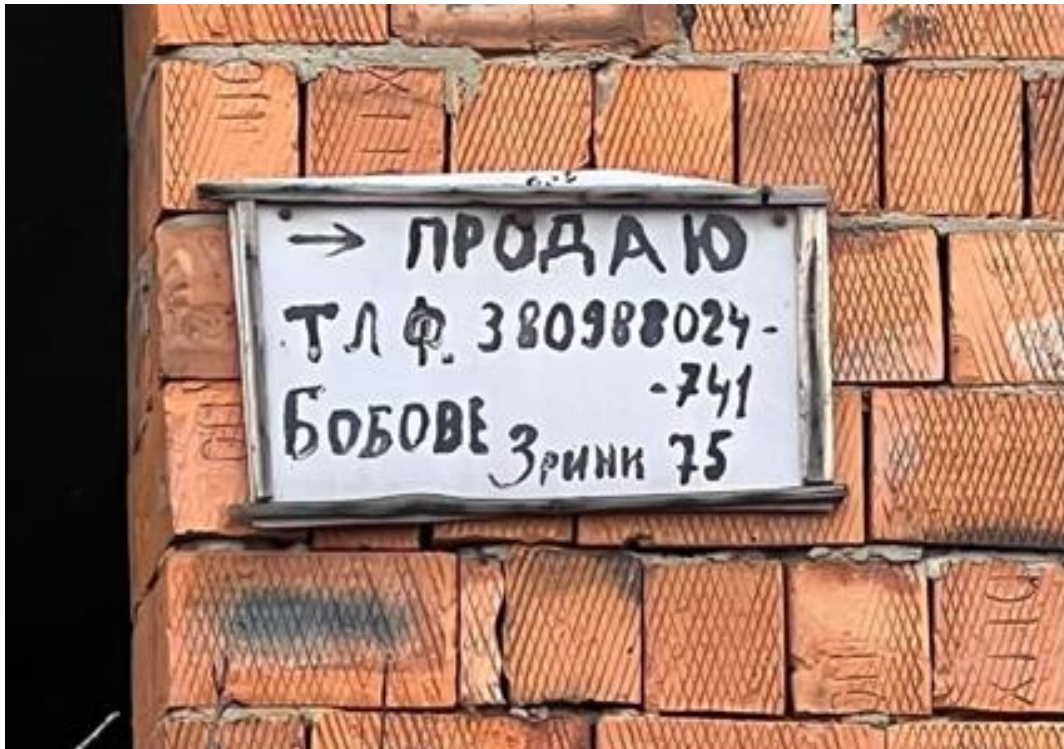 → ПРОДАЮ
ТЛФ. 380988024-
-741
БОБОВЕ Зрини 75